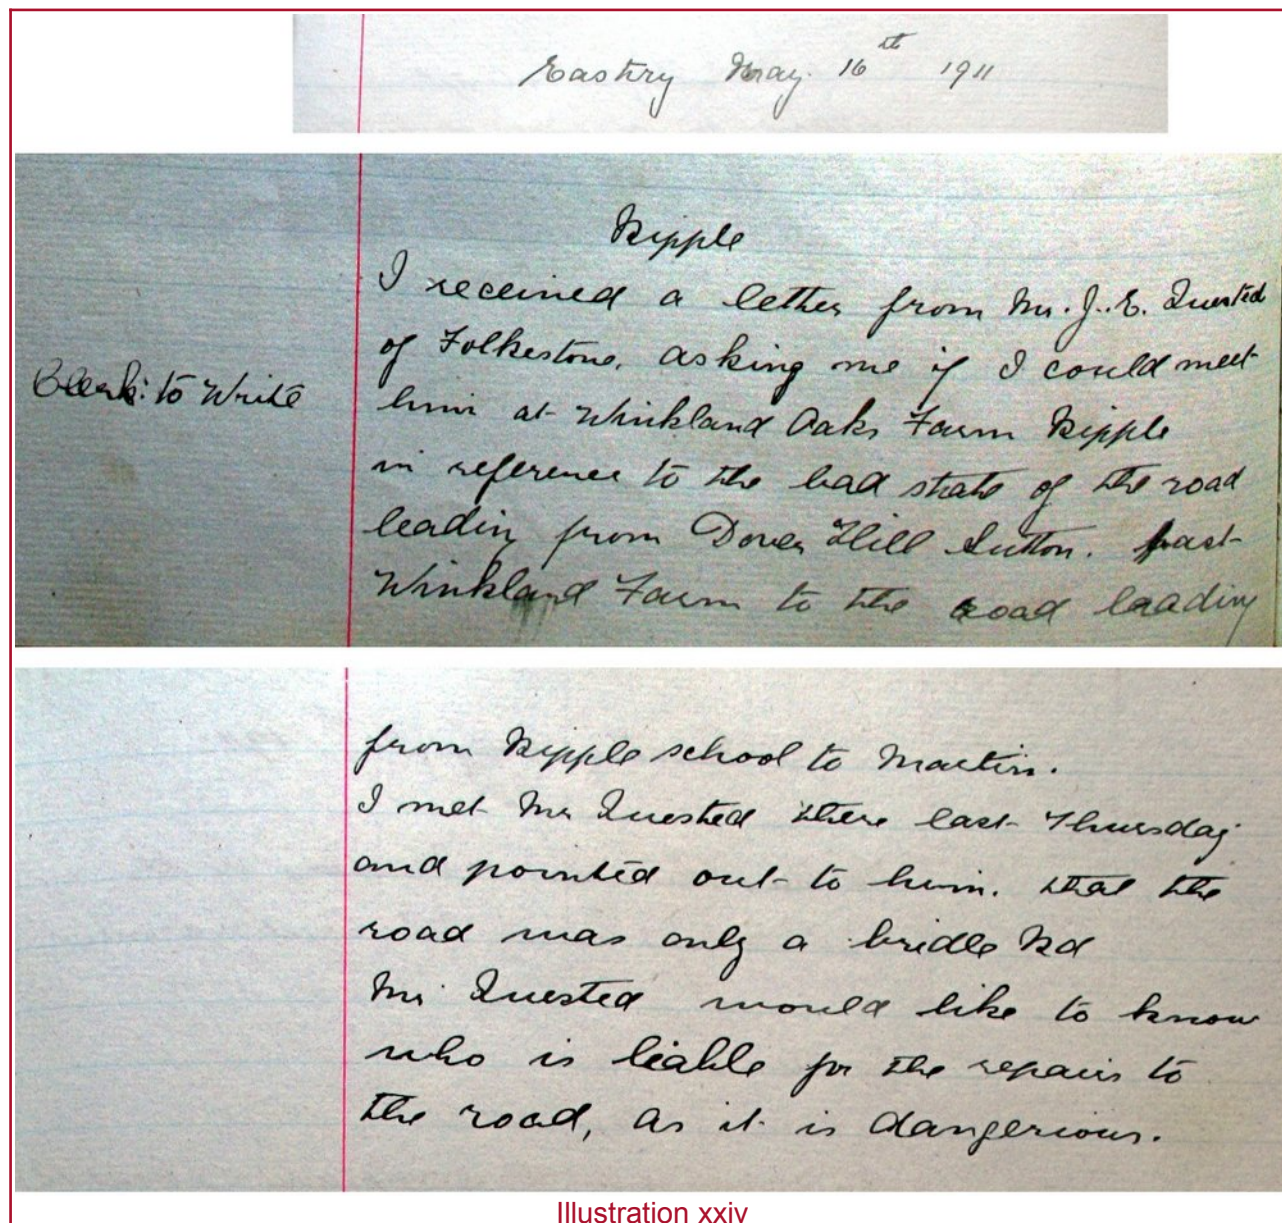 Eastry May 16th 1911
Ripple
I received a letter from Mr. J. E. Quested
of Folkestone, asking me if I could meet
Clerk: to Write
him at Winkland Oaks Farm Ripple
in reference to the bad state of the road
leading from Dover Hill Sutton. past
Winkland Farm to the road leading
from Ripple school to Martin.
I met Mr Quested there last Thursday
and pointed out to him. that the
road was only a bridle Rd
Mr Quested would like to know
who is liable for the repairs to
the road, as it is dangerious.
Illustration xxiv